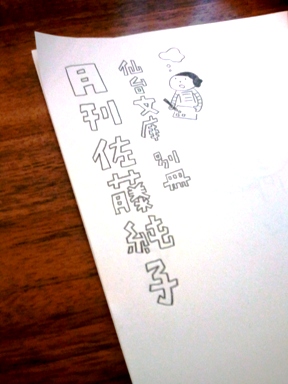 仙台文庫 別冊
月刊 佐藤純子